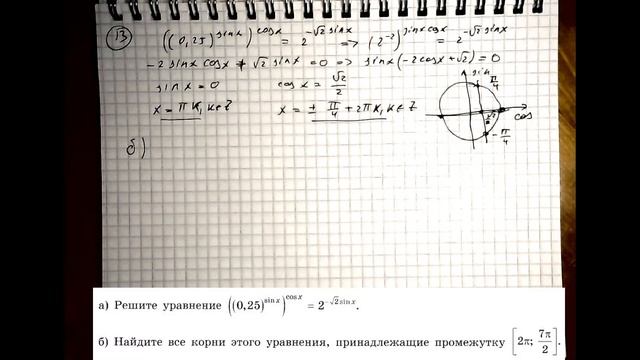 13 ((0,25)^sinx)^cosx = 2^-√2 sinx => (2^-2)^sinx cosx = 2^-√2 sinx
-2 sinx cosx + √2 sinx = 0 => sinx(-2cosx + √2) = 0
sinx = 0 cosx = √2/2
x = πk, k∈Z x = ± π/4 + 2πk, k∈Z
sin
π/4
cos
-π/4
б)
а) Решите уравнение ((0,25)^sin x)^cos x = 2^-√2 sin x.
б) Найдите все корни этого уравнения, принадлежащие промежутку [2π; 7π/2].